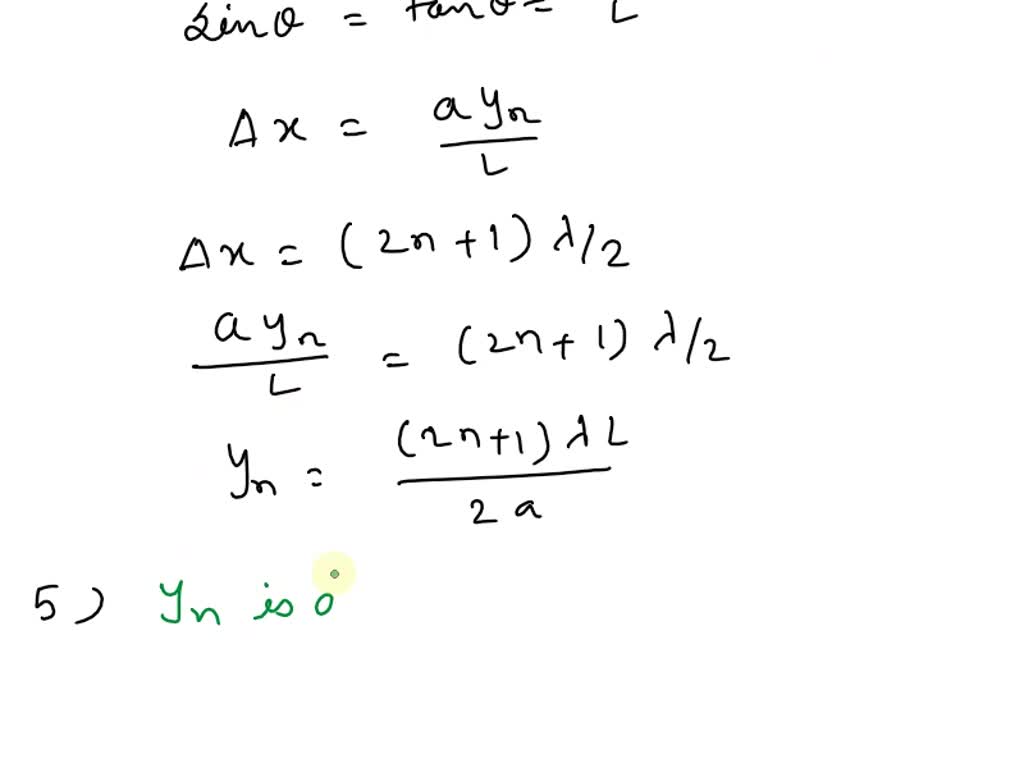 sinθ = tanθ = L
Δx = a yn / L
Δx = (2n+1) λ/2
a yn / L = (2n+1) λ/2
yn = (2n+1) λ L / 2 a
5) yn is o